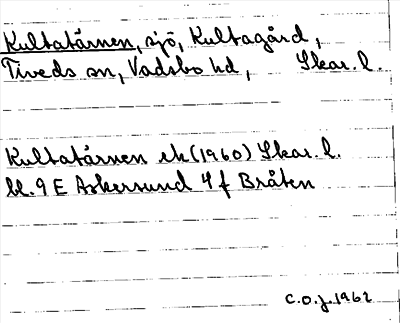 Kultatärnen, sjö, Kultagård,
Tiveds sn, Vadsbo hd, Skar. l.
Kultatärnen ek (1960) Skar. l.
bl. 9 E Askersund 4 f Bråten
C.O.J. 1962